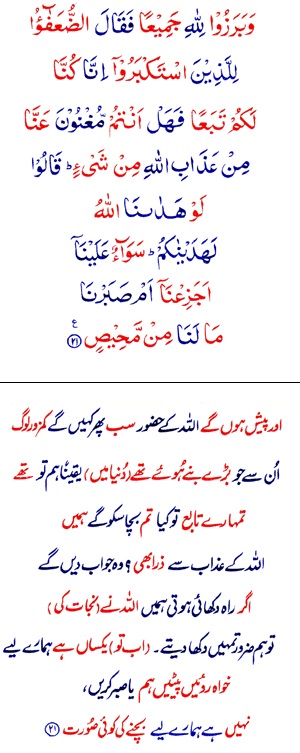 وَبَرَزُوۡا لِلّٰہِ جَمِیۡعًا فَقَالَ الضُّعَفٰٓؤُا
لِلَّذِیۡنَ اسۡتَکۡبَرُوۡۤا اِنَّا کُنَّا
لَکُمۡ تَبَعًا فَہَلۡ اَنۡتُمۡ مُّغۡنُوۡنَ عَنَّا
مِنۡ عَذَابِ اللّٰہِ مِنۡ شَیۡءٍ ؕ قَالُوۡا
لَوۡ ہَدٰٮنَا اللّٰہُ
لَہَدَیۡنٰکُمۡ ؕ سَوَآءٌ عَلَیۡنَاۤ
اَجَزِعۡنَاۤ اَمۡ صَبَرۡنَا
مَا لَنَا مِنۡ مَّحِیۡصٍ ﴿۲۱﴾ ع
اور پیش ہوں گے اللہ کے حضور سب پھر کہیں گے کمزور لوگ
اُن سے جو بڑے بنے ہُوئے تھے (دُنیا میں) یقیناً ہم تو تھے
تمہارے تابع تو کیا تم بچا سکو گے ہمیں
اللہ کے عذاب سے ذرا بھی؟ وہ جواب دیں گے
اگر راہ دکھائی ہوتی ہمیں اللہ نے (نجات کی)
تو ہم ضرور تمہیں دکھا دیتے۔ (اب تو) یکساں ہے ہمارے لیے
خواہ روئیں پیٹیں ہم یا صبر کریں،
نہیں ہے ہمارے لیے بچنے کی کوئی صُورت ﴿۲۱﴾